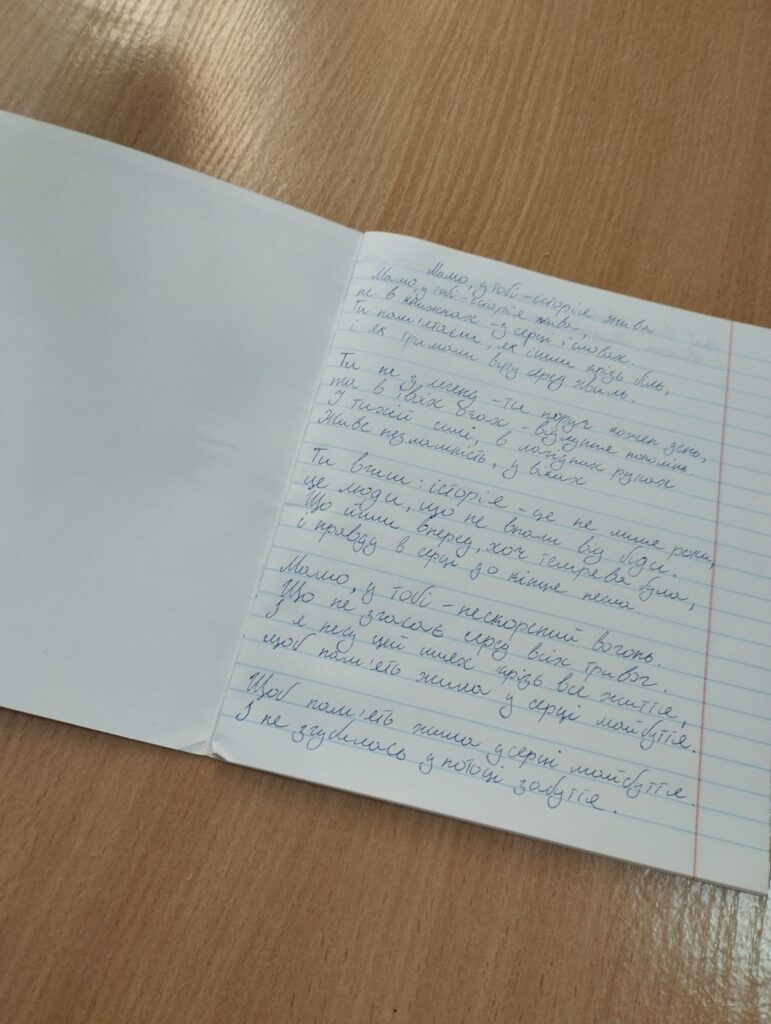 Мамо, у тобі - історія жива
Мамо, у тобі - історія жива,
не в книжках - у серці і словах.
Ти пам'ятаєш, як ішли крізь біль,
і як тримали віру серед хвиль.
Ти не з легенд - ти поруч кожен день,
та в твоїх очах - відлуння поколінь.
У тихій силі, в лагідних руках
Живе незламність, у віках
Ти вчиш: історія - це не лише роки,
це люди, що не впали від біди.
Що йшли вперед, хоч темрява була,
і правду в серці до кінця несла
Мамо, у тобі - нескорений вогонь.
Що не згасає серед всіх тривог.
І я несу цей шлях крізь все життя,
щоб пам'ять жила у серці майбуття.
Щоб пам'ять жила у серці майбуття.
І не згубилась у потоці забуття.